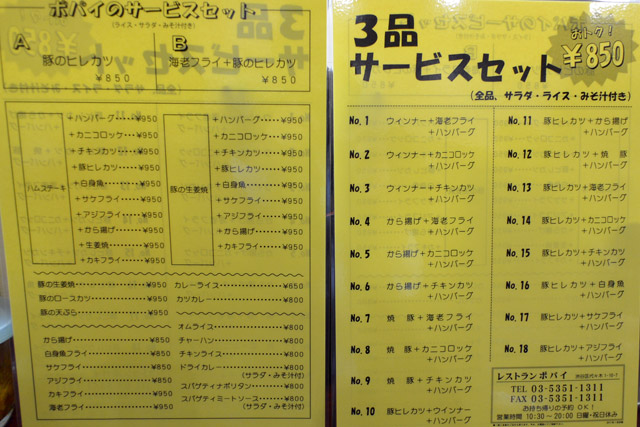 ポパイのサービスセット
(ライス・サラダ・みそ汁付き)
A
豚のヒレカツ
¥850
B
海老フライ+豚のヒレカツ
¥850
ハムステーキ
+ハンバーグ……¥950
+カニコロッケ……¥950
+チキンカツ……¥950
+豚ヒレカツ……¥950
+白身魚……¥950
+サケフライ……¥950
+アジフライ……¥950
+から揚げ……¥950
+生姜焼……¥950
+カキフライ……¥950
豚の生姜焼
+ハンバーグ……¥950
+カニコロッケ……¥950
+チキンカツ……¥950
+豚ヒレカツ……¥950
+白身魚……¥950
+サケフライ……¥950
+アジフライ……¥950
+から揚げ……¥950
+カキフライ……¥950
豚の生姜焼……¥950
豚のロースカツ……¥950
豚の天ぷら……¥950
カレーライス……¥650
カツカレー……¥800
から揚げ……¥850
白身魚フライ……¥850
サケフライ……¥850
アジフライ……¥850
カキフライ……¥950
海老フライ……¥950
オムライス……¥800
チャーハン……¥800
チキンライス……¥800
ドライカレー……¥800
(サラダ・みそ汁付)
スパゲティナポリタン……¥800
スパゲティミートソース……¥800
(サラダ・みそ汁付)
3品
サービスセット
おトク!
¥850
(全品、サラダ・ライス・みそ汁付き)
No. 1 ウィンナー+海老フライ
+ハンバーグ
No. 2 ウィンナー+カニコロッケ
+ハンバーグ
No. 3 ウィンナー+チキンカツ
+ハンバーグ
No. 4 から揚げ+海老フライ
+ハンバーグ
No. 5 から揚げ+カニコロッケ
+ハンバーグ
No. 6 から揚げ+チキンカツ
+ハンバーグ
No. 7 焼 豚+海老フライ
+ハンバーグ
No. 8 焼 豚+カニコロッケ
+ハンバーグ
No. 9 焼 豚+チキンカツ
+ハンバーグ
No. 10 豚ヒレカツ+ウインナー
+ハンバーグ
No. 11 豚ヒレカツ+から揚げ
+ハンバーグ
No. 12 豚ヒレカツ+焼 豚
+ハンバーグ
No. 13 豚ヒレカツ+海老フライ
+ハンバーグ
No. 14 豚ヒレカツ+カニコロッケ
+ハンバーグ
No. 15 豚ヒレカツ+チキンカツ
+ハンバーグ
No. 16 豚ヒレカツ+白身魚
+ハンバーグ
No. 17 豚ヒレカツ+サケフライ
+ハンバーグ
No. 18 豚ヒレカツ+アジフライ
+ハンバーグ
レストランポパイ
TEL 03-5351-1311
FAX 03-5351-1311
お持ち帰りの予約OK!
営業時間 10:30~20:00 日曜・祝日休み